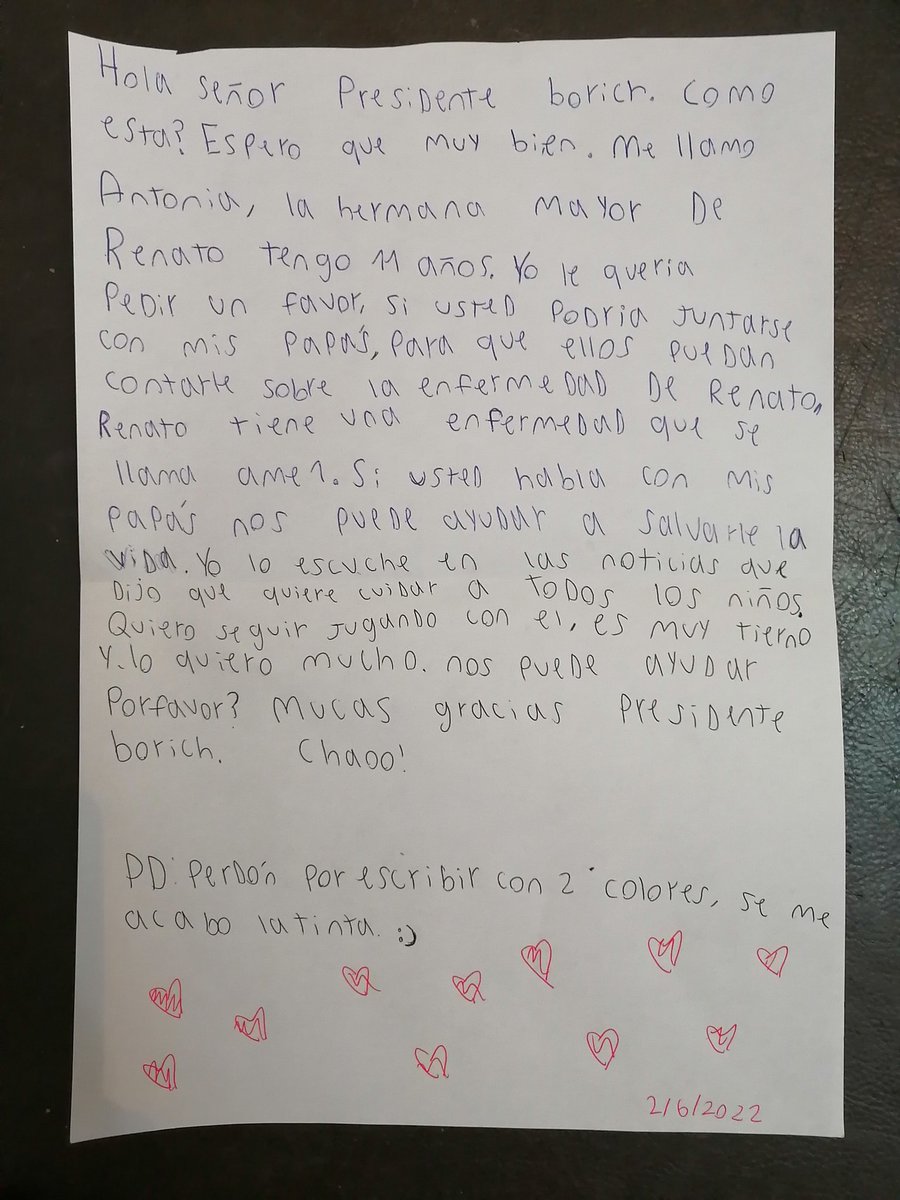 Hola señor Presidente borich. Como
esta? Espero que muy bien. Me llamo
Antonia, la hermana mayor De
Renato tengo 11 años. Yo le queria
Pedir un favor, si usted podria juntarse
con mis papás, para que ellos puedan
contarle sobre la enfermedad De Renato,
Renato tiene una enfermedad que se
llama ame 1. Si usted habla con mis
papás nos puede ayudar a salvarle la
vida. Yo lo escuche en las noticias que
Dijo que quiere cuidar a todos los niños.
Quiero seguir jugando con el, es muy tierno
y.lo quiero mucho. nos puede ayudar
Porfavor? Mucas gracias presidente
borich. Chaoo!
PD: Perdón por escribir con 2 colores, se me
acabo la tinta. :)
2/6/2022